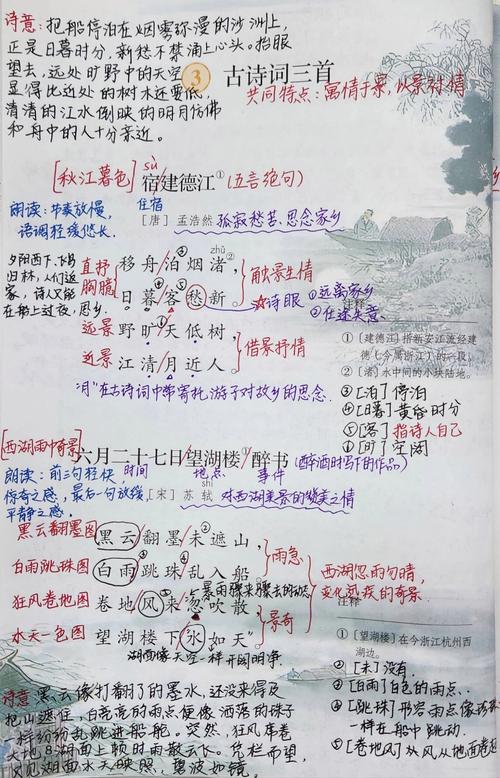 诗意：把船停泊在烟雾弥漫的沙洲上，
正是日暮时分，新愁不禁涌上心头。抬眼
望去，远处旷野中的天空
显得比近处的树木还要低，
清清的江水倒映的明月仿佛
和舟中的人十分亲近。
3 古诗词三首
共同特点：寓情于景，以景衬情
[秋江暮色]
sù
宿建德江① (五言绝句)
住宿
朗读：节奏放慢，
语调轻缓悠长。
[唐] 孟浩然 孤寂愁苦、思念家乡
夕阳西下、飞鸟
归林，人们返
家，诗人又能
在船上过夜，思乡。
直抒
胸臆
zhǔ
移舟/泊烟渚②，
日暮/客愁新。
触景生情
诗眼
①远离家乡
②仕途失意
远景 野旷/天低树，
近景 江清/月近人。
借景抒情
"月"在古诗词中常寄托游子对故乡的思念
注释
①〔建德江〕指新安江流经建
德（今属浙江）的一段。
②〔渚〕水中间的小块陆地。
③[泊]停泊
④[日暮]黄昏时分
⑤[客]指诗人自己
⑥[旷]空阔
[西湖雨中奇景]
六月二十七日/望湖楼①/醉书
(醉酒时写下的作品)
时间 地点 事件
朗读：前三句轻快，
惊奇之感，最后一句放缓，
平静之感。
shì
[宋] 苏轼 对西湖美景的赞美之情
黑云翻墨图 黑云/翻墨/未②遮山，
白雨跳珠图 白雨③/跳珠④/乱入船。
雨急
狂风卷地图 卷地/风来⑤/忽吹散，
水天一色图 望湖楼下/水如天。
景奇
西湖忽雨忽晴，
变化极疾的奇景
湖面像天空一样开阔明净。
注释
①〔望湖楼〕在今浙江杭州西
湖边。
②[未]没有。
③[白雨]白色的雨点。
④[跳珠]形容雨点像珍珠
一样在船中跳动。
⑤[卷地风]从风从地面卷起
诗意：黑云像打翻了的墨水，还没来得及
把山遮住，白亮亮的雨点便像洒落的珠子
一样纷纷乱跳进船舱。突然，狂风席卷
大地，湖面上顿时雨散云长。凭栏而望，
只见湖面水天相照，碧波如镜。